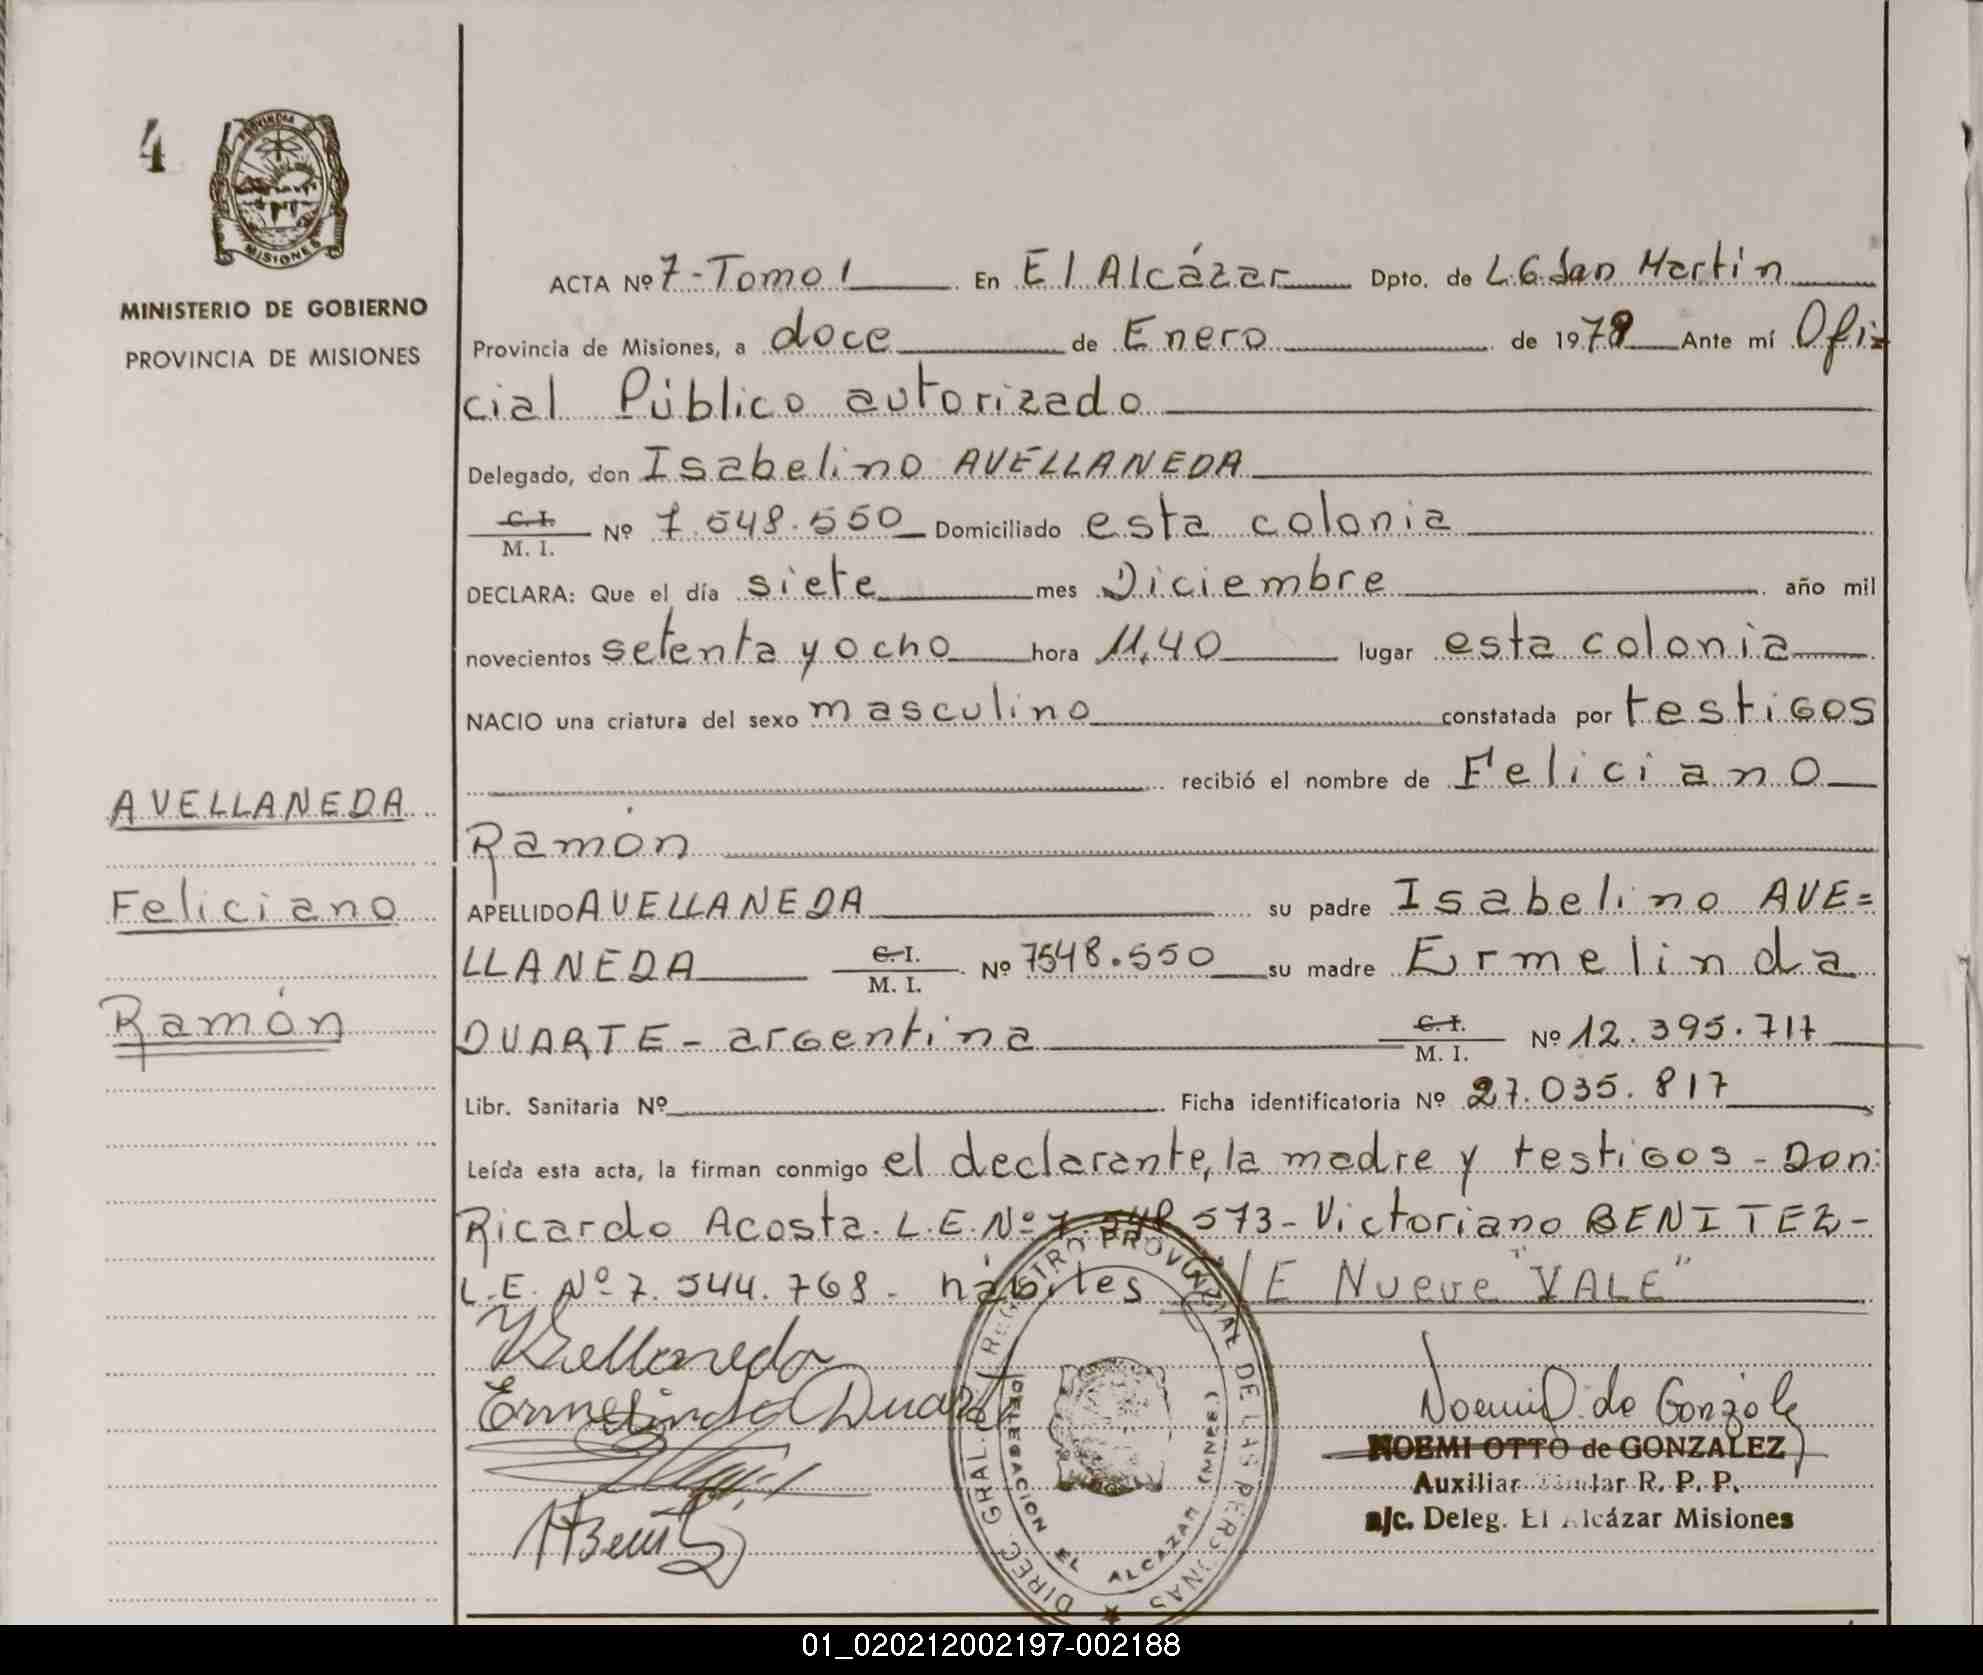 4
PROVINCIA D
MISIONES
MINISTERIO DE GOBIERNO
PROVINCIA DE MISIONES
AVELLANEDA
Feliciano
Ramón
ACTA Nº 7-Tomo I En El Alcázar Dpto. de L.G.San Martín
Provincia de Misiones, a doce de Enero de 1979 Ante mí Ofi=
cial Público autorizado
Delegado, don Isabelino AVELLANEDA
C.I. / M. I. Nº 7.548.550 Domiciliado esta colonia
DECLARA: Que el día siete mes Diciembre año mil
novecientos setenta y ocho hora 11,40 lugar esta colonia
NACIO una criatura del sexo masculino constatada por testigos
recibió el nombre de Feliciano
Ramón
APELLIDO AVELLANEDA su padre Isabelino AVE=
LLANEDA C.I. / M. I. Nº 7548.550 su madre Ermelinda
DUARTE - argentina C.I. / M. I. Nº 12.395.717
Libr. Sanitaria Nº Ficha identificatoria Nº 27.035.817
Leída esta acta, la firman conmigo el declarante, la madre y testigos - Don:
Ricardo Acosta. L.E. Nº 7.548.573 - Victoriano BENITEZ -
L.E. Nº 7.544.768 - hábiles /E Nueve "VALE"
Avellaneda
Ermelinda Duarte
VBenitz
Noemi O. de Gonzalez
NOEMI OTTO de GONZALEZ
Auxiliar Titular R. P. P.
a/c. Deleg. El Alcázar Misiones
DIREC. GRAL. REGISTRO PROVINCIAL DE LAS PERSONAS
DELEGACION EL ALCAZAR (MNES.)
01_020212002197-002188